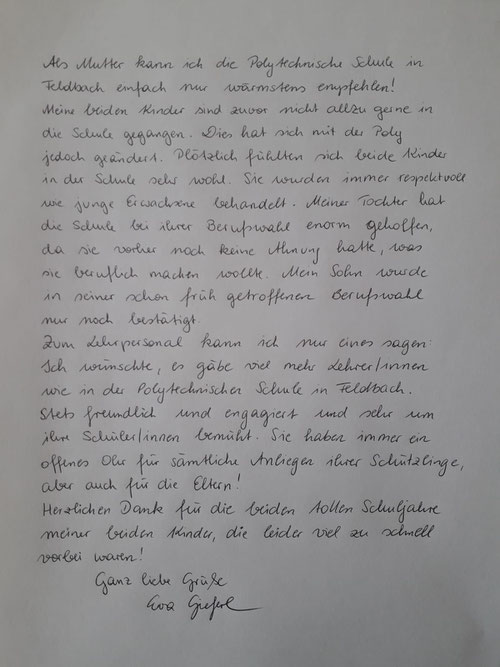 Als Mutter kann ich die Polytechnische Schule in
Feldbach einfach nur wärmstens empfehlen!
Meine beiden Kinder sind zuvor nicht allzu gerne in
die Schule gegangen. Dies hat sich mit der Poly
jedoch geändert. Plötzlich fühlten sich beide Kinder
in der Schule sehr wohl. Sie wurden immer respektvoll
wie junge Erwachsene behandelt. Meiner Tochter hat
die Schule bei ihrer Berufswahl enorm geholfen,
da sie vorher noch keine Ahnung hatte, was
sie beruflich machen wollte. Mein Sohn wurde
in seiner schon früh getroffenen Berufswahl
nur noch bestätigt.
Zum Lehrpersonal kann ich nur eines sagen:
Ich wünschte, es gäbe viel mehr Lehrer/innen
wie in der Polytechnischen Schule in Feldbach.
Stets freundlich und engagiert und sehr um
ihre Schüler/innen bemüht. Sie haben immer ein
offenes Ohr für sämtliche Anliegen ihrer Schützlinge,
aber auch für die Eltern!
Herzlichen Dank für die beiden tollen Schuljahre
meiner beiden Kinder, die leider viel zu schnell
vorbei waren!
Ganz liebe Grüße
Eva